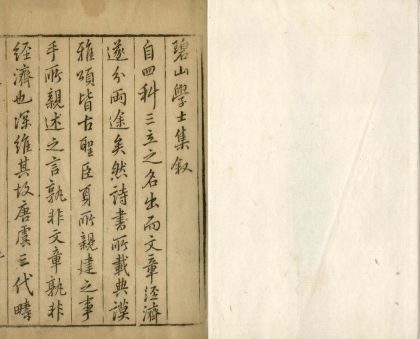 碧山學士集叙
自四科三立之名出而文章經濟
遂分兩途矣然詩書所載典謨
雅頌皆古聖臣夏所親建之事
手所親述之言孰非文章孰非
經濟也深維其故唐虞三代疇